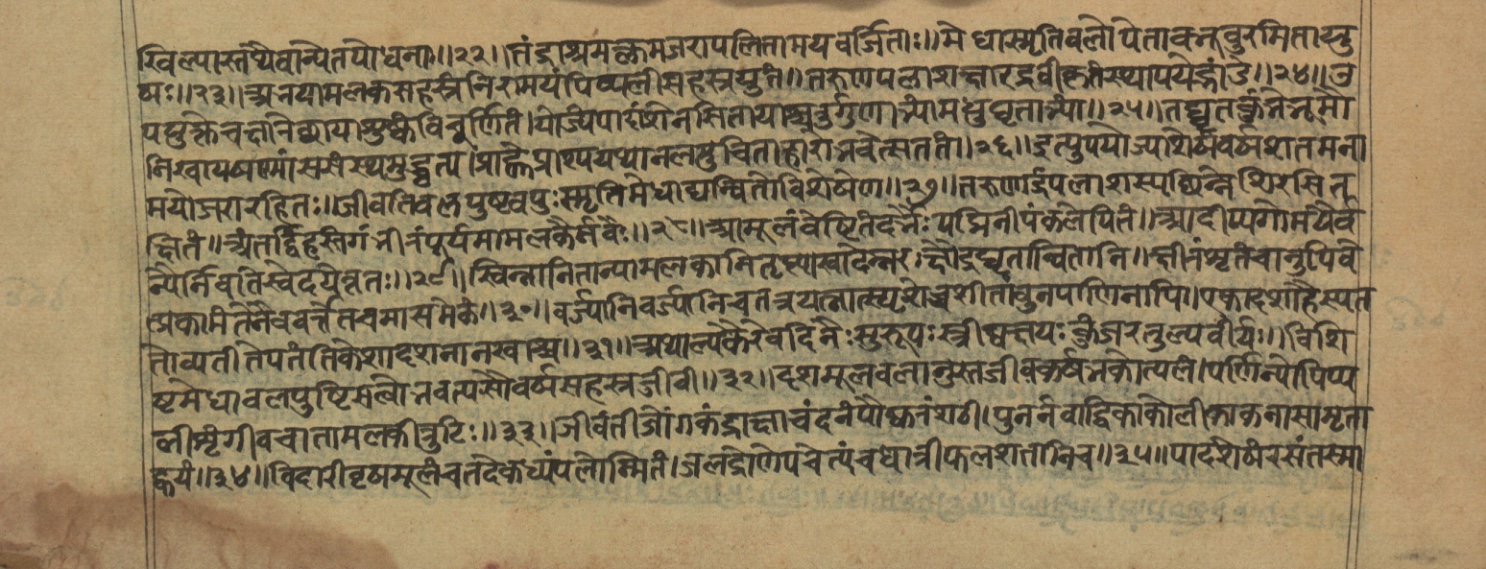 खिल्यास्तथैवान्येतपोधनाः॥२२॥तंद्राश्रमक्लमजरापलितामयवर्जिताः॥मेधास्मृतिबलोपेताबभूवुरमितायु
षः॥२३॥अभयामलकसहस्रंनिरामयंपिप्पलीसहस्रयुतं॥तरुणपलाशक्षारद्रवीकृतंस्थापयेद्भांडे॥२४॥उ
पयुक्तेचक्षारेछायाशुष्कंविचूर्णितं।योज्यंपादांशेनसितायाश्चतुर्गुणाभ्यांमधुघृताभ्यां॥२५॥तद्घृतकुंभेभूमौ
निखायषण्मांससंस्थमुद्धृत्य।प्राह्णेप्राश्ययथानलमुचिताहाराभवेत्सततं॥२६॥इत्युपयोज्याशेषंवर्षशतमना
मयोजरारहितः॥जीवतिबलपुष्टवपुःस्मृतिमेधाद्यन्वितोविशेषेण॥२७॥तरुणपलाशस्यछिन्नेशिरसित
त्क्षितं॥अंतर्द्विहस्तंगंभीरंपूर्यमामलकैर्नवैः॥२८॥आमूलंवेष्टितंदर्भैःपद्मिनीपंकलेपितं॥आदीप्यगोमयैर्व
न्यैर्निवातेस्वेदयेत्ततः॥२९॥स्विन्नानितान्यामलकानितृप्त्याखादेन्नरःक्षौद्रघृतान्वितानि॥क्षीरंशृतंचानुपिबे
त्प्रकामंतेनैववर्त्तेतचमासमेकं॥३०॥वर्ज्यानिवर्ज्यानिचतत्रयत्नात्स्पृश्यंचशीतांबुनपाणिनापि॥एकादशाहेस्यत
तोव्यतीतेपतंतिकेशादशनानखाश्च॥३१॥अथाल्पकैरेवदिनैःसुरूपःस्त्रीष्वक्षयःकुंजरतुल्यवीर्यः॥विशि
ष्टमेधाबलपुष्टिसत्वोभवत्यसौवर्षसहस्रजीवी॥३२॥दशमूलबलामुस्तजीवकर्षभकोत्पलं।पर्णिन्योपिप्प
लीशृंगीवचातामलकीत्रुटिः॥३३॥जीवंतीजोंगकंद्राक्षाचंदनंपौष्करंशठी।पुनर्नवाद्विकाकोलीकाकनासामृता
ह्वयं॥३४॥विदारीवृषमूलंचतदेकध्यंपलोन्मितं।जलद्रोणेपचेत्पंचधात्रीफलशतानिच॥३५॥पादशेषंरसंतस्मा